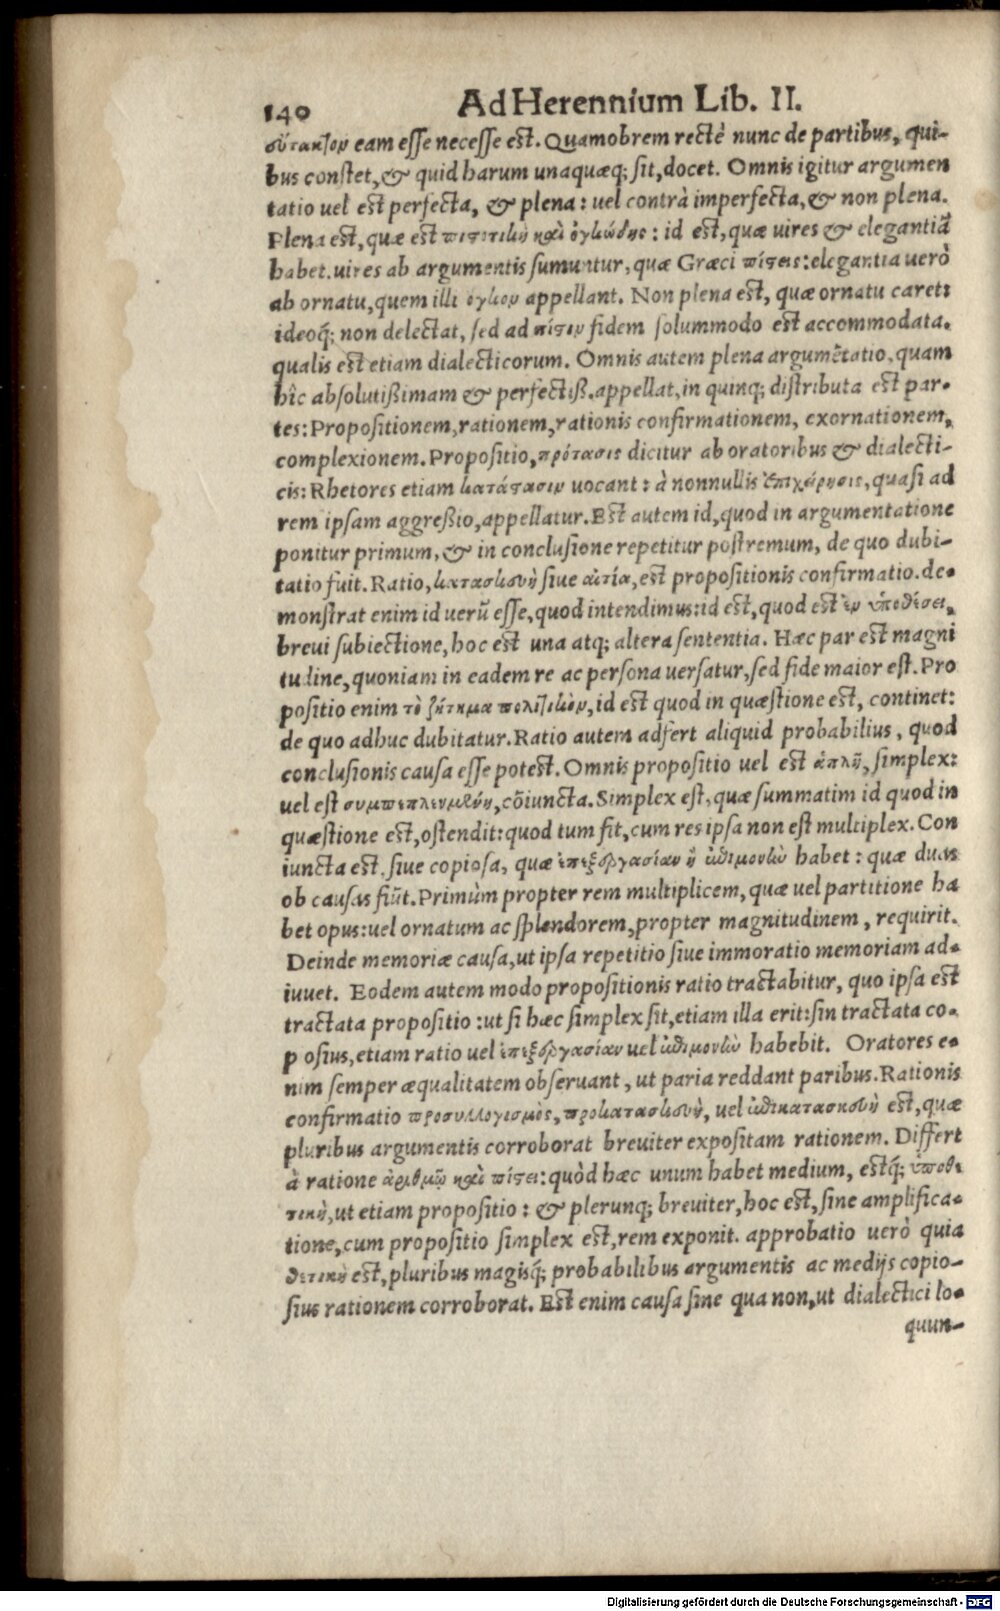 140 Ad Herennium Lib. II.
σύτακτον eam esse necesse est. Quamobrem rectè nunc de partibus, qui-
bus constet, & quid harum unaquæq; sit, docet. Omnis igitur argumen
tatio uel est perfecta, & plena: uel contrà imperfecta, & non plena.
Plena est, quæ est πιστικὴ καὶ ὀγκώδης: id est, quæ uires & elegantiã
habet. uires ab argumentis sumuntur, quæ Græci πίστεις: elegantia uerò
ab ornatu, quem illi ὄγκον appellant. Non plena est, quæ ornatu caret:
ideoq́; non delectat, sed ad πίστιν fidem solummodo est accommodata.
qualis est etiam dialecticorum. Omnis autem plena argumẽtatio, quam
hîc absolutißimam & perfectiß. appellat, in quinq; distributa est par-
tes: Propositionem, rationem, rationis confirmationem, exornationem,
complexionem. Propositio, πρότασις dicitur ab oratoribus & dialecti-
cis: Rhetores etiam κατάστασιν uocant: à nonnullis ἐπιχείρησις, quasi ad
rem ipsam aggreßio, appellatur. Est autem id, quod in argumentatione
ponitur primum, & in conclusione repetitur postremum, de quo dubi-
tatio fuit. Ratio, κατασκευὴ siue αἰτία, est propositionis confirmatio. de-
monstrat enim id uerũ esse, quod intendimus: id est, quod est ἐν ὑποθέσει,
breui subiectione, hoc est una atq; altera sententia. Hæc par est magni
tudine, quoniam in eadem re ac persona uersatur, sed fide maior est. Pro
positio enim τὸ ζήτημα πολιτικὸν, id est quod in quæstione est, continet:
de quo adhuc dubitatur. Ratio autem adfert aliquid probabilius, quod
conclusionis causa esse potest. Omnis propositio uel est ἁπλῆ, simplex:
uel est συμπεπλεγμένη, cõiuncta. Simplex est, quæ summatim id quod in
quæstione est, ostendit: quod tum fit, cum res ipsa non est multiplex. Con
iuncta est, siue copiosa, quæ ἐπεξεργασίαν ἢ ἐπιμονὴν habet: quæ duas
ob causas fiũt. Primùm propter rem multiplicem, quæ uel partitione ha
bet opus: uel ornatum ac splendorem, propter magnitudinem, requirit.
Deinde memoriæ causa, ut ipsa repetitio siue immoratio memoriam ad-
iuuet. Eodem autem modo propositionis ratio tractabitur, quo ipsa est
tractata propositio: ut si hæc simplex sit, etiam illa erit: sin tractata co-
p osius, etiam ratio uel ἐπεξεργασίαν uel ἐπιμονὴν habebit. Oratores e-
nim semper æqualitatem obseruant, ut paria reddant paribus. Rationis
confirmatio προσυλλογισμὸς, προκατασκευὴ, uel ἐπικατασκευὴ est, quæ
pluribus argumentis corroborat breuiter expositam rationem. Differt
à ratione ἀριθμῷ καὶ πίστει: quòd hæc unum habet medium, estq́; ὑποθε
τικὴ, ut etiam propositio: & plerunq; breuiter, hoc est, sine amplifica-
tione, cum propositio simplex est, rem exponit. approbatio uerò quia
θετικὴ est, pluribus magisq́; probabilibus argumentis ac medijs copio-
sius rationem corroborat. Est enim causa sine qua non, ut dialectici lo-
quun-
Digitalisierung gefördert durch die Deutsche Forschungsgemeinschaft - DFG